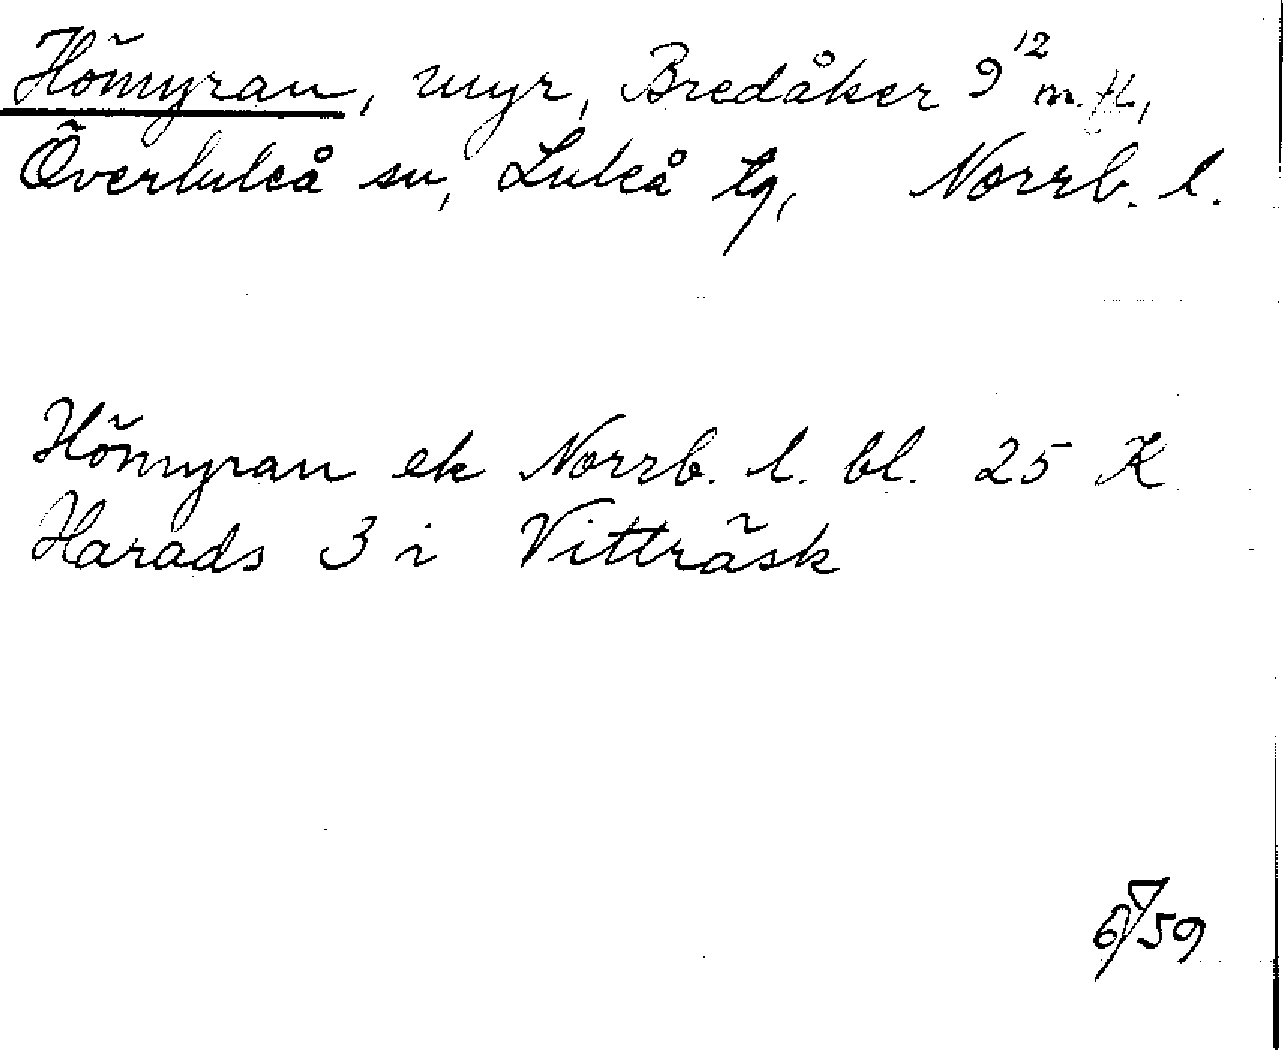 Hömyran, myr, Bredåker 9¹² m.fl.,
Överluleå sn, Luleå tg, Norrb. l.
Hömyran ek Norrb. l. bl. 25 K
Harads 3 i Vitträsk
6/59